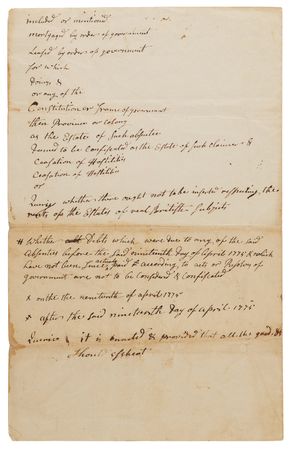 included or mentioned
mortgaged by order of government
Leased by order of government
for which
doings &
or any of the
Constitution or frame of government
then Province or Colony
as the Estates of such absentee
deemed to be Confiscated as the Estate of such claimer &
Cessation of Hostilities
Cessation of Hostilities
or
Query whether there ought not to be inserted respecting the
rents of the Estates of real British Subjects
# Whether all Debts which were due to any of the said
Absentees before the said nineteenth day of April 1775 & which
have not been paid & according to acts or Resolves of
Government are not to be Confiscated
x on the the nineteenth of April 1775
x after the said nineteenth day of April 1775
it is enacted & provided that all the goods &c
Should escheat